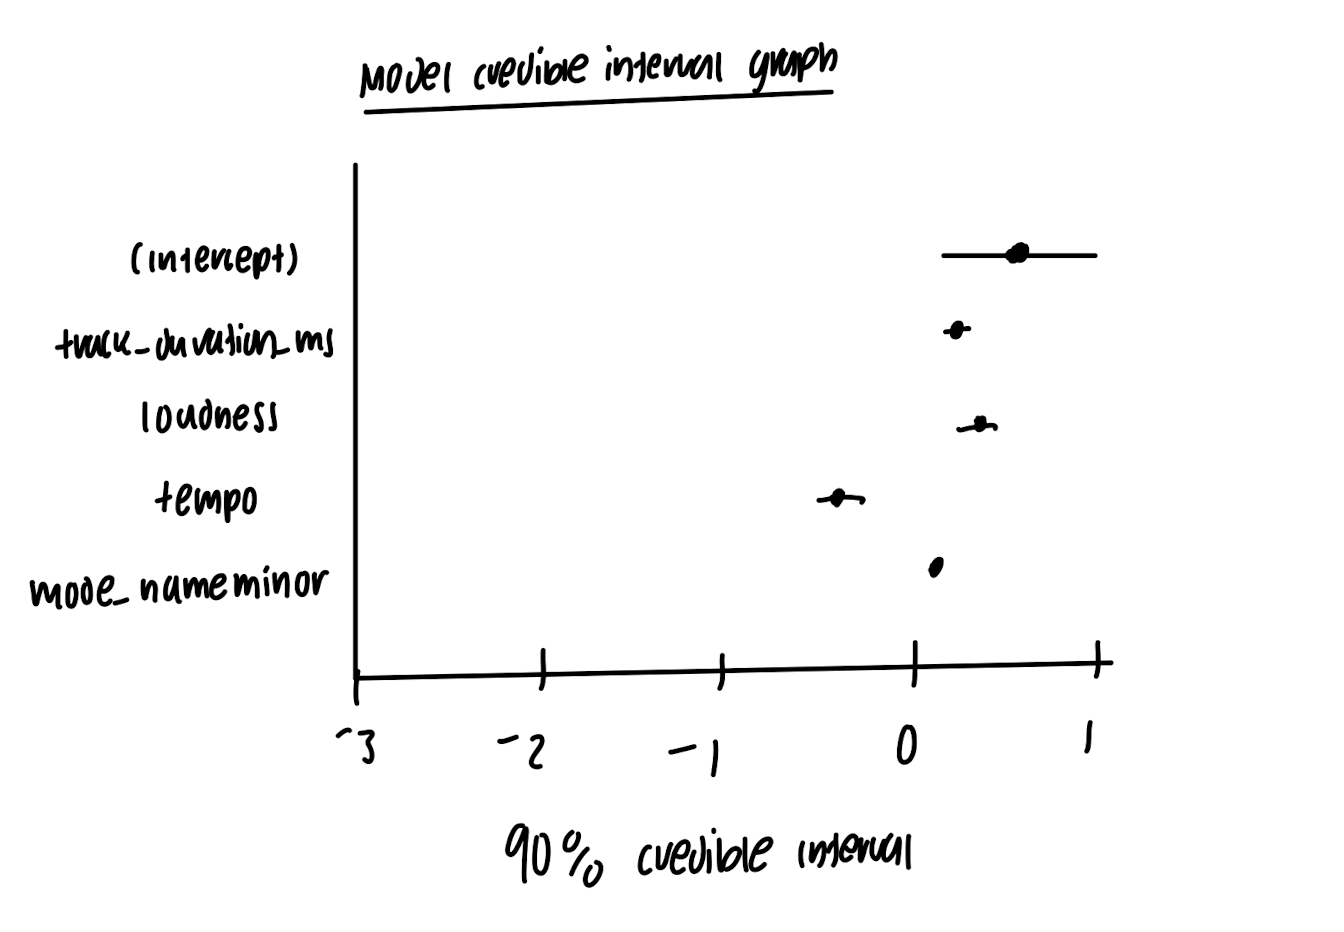 Model credible interval graph
(intercept)
track_duration_ms
loudness
tempo
mode_nameminor
-3 -2 -1 0 1
90% credible interval